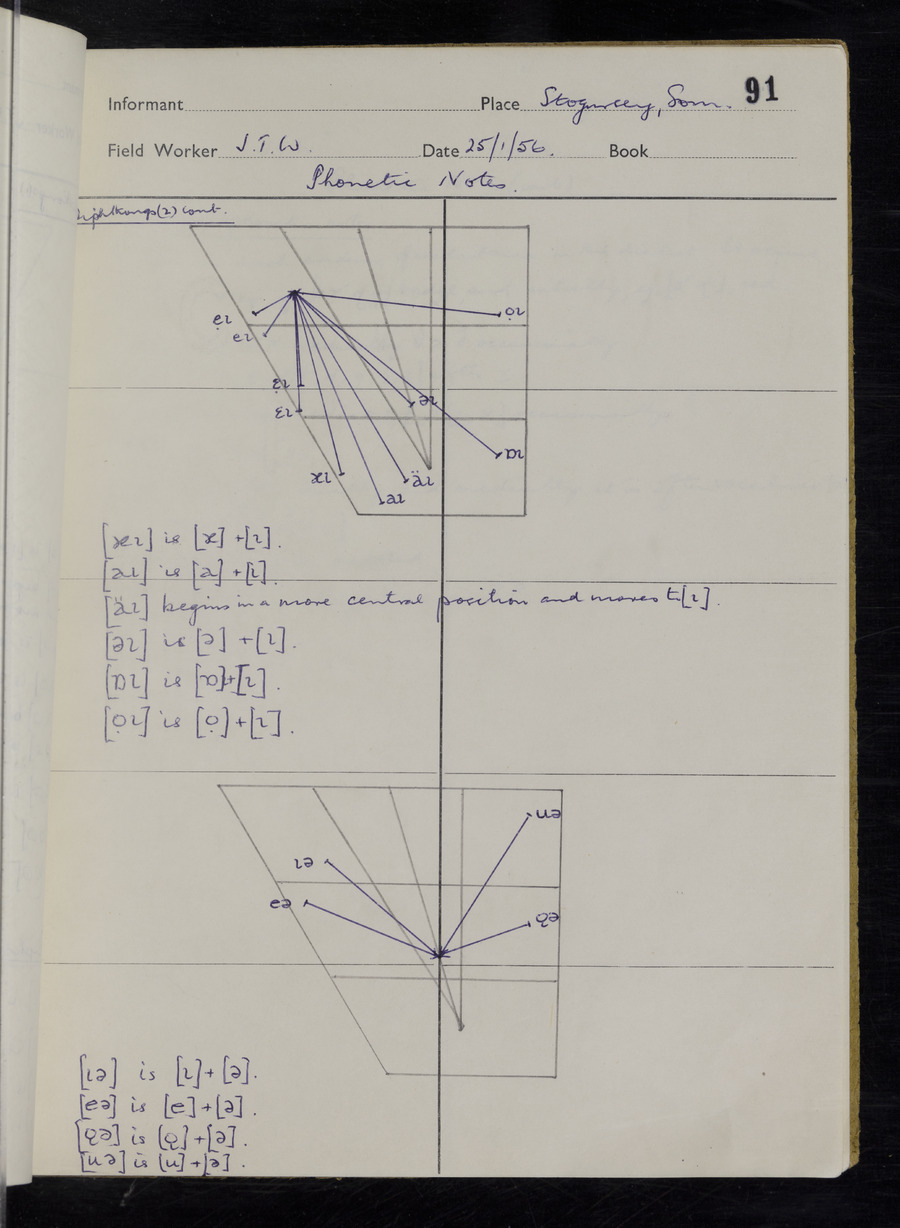 91
Informant Place Stogursey, Som.
Field Worker J.T.W. Date 25/1/56. Book
Phonetic Notes.
Diphthongs (2) cont.
ẹɪ
eɪ
ọɪ
ɛ̣ɪ
əɪ
ɛɪ
æɪ
äɪ
ɒɪ
aɪ
[æɪ] is [æ] + [ɪ].
[aɪ] is [a] + [ɪ].
[äɪ] begins in a more central position and moves to [ɪ].
[əɪ] is [ə] + [ɪ].
[ɒɪ] is [ɒ] + [ɪ].
[ọɪ] is [ọ] + [ɪ].
uə
ɪə
eə
ọə
[ɪə] is [ɪ] + [ə].
[eə] is [e] + [ə].
[ọə] is [ọ] + [ə].
[uə] is [u] + [ə].